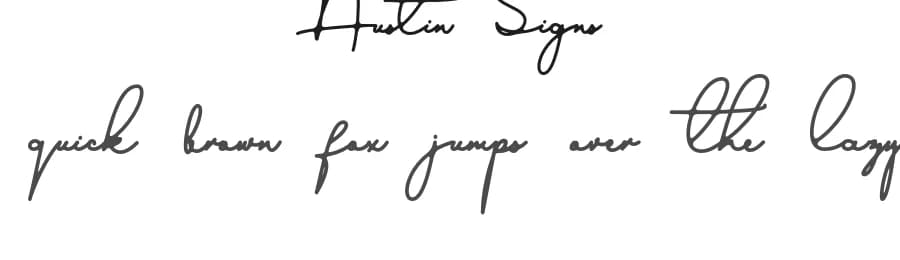 Austin Signs
quick brown fox jumps over the lazy